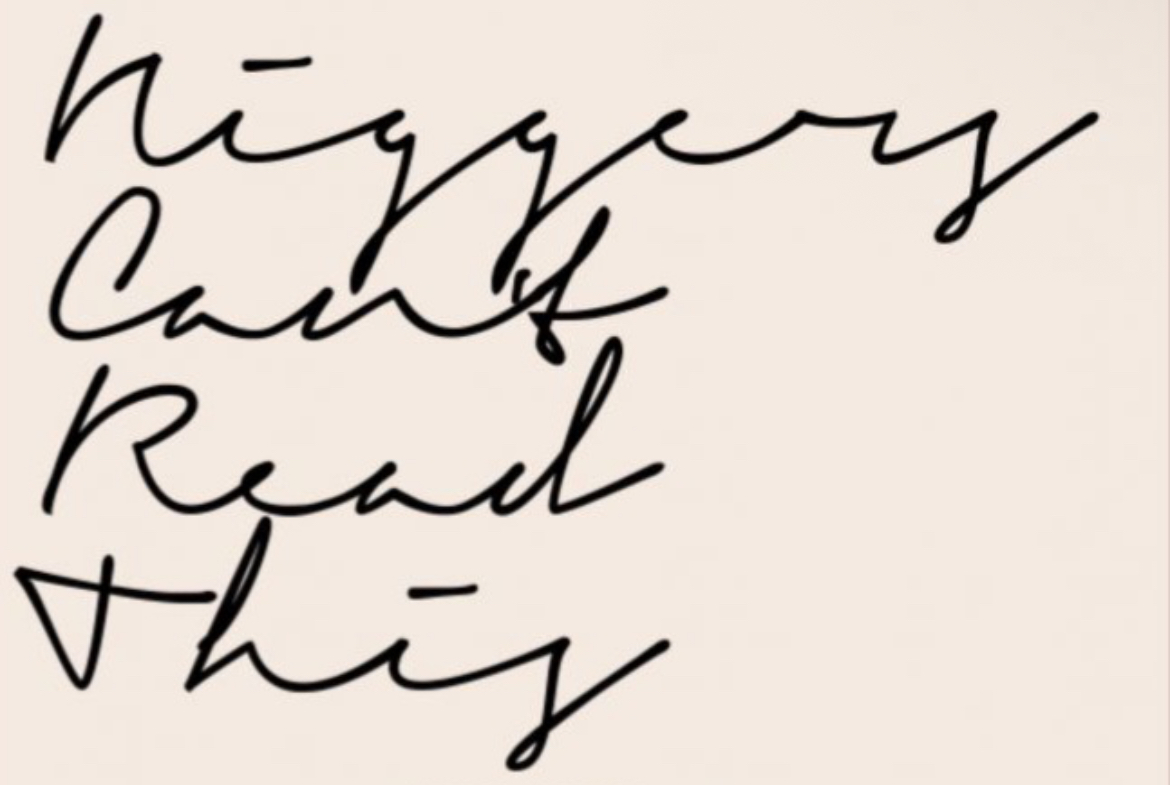 Niggers
Can't
Read
This